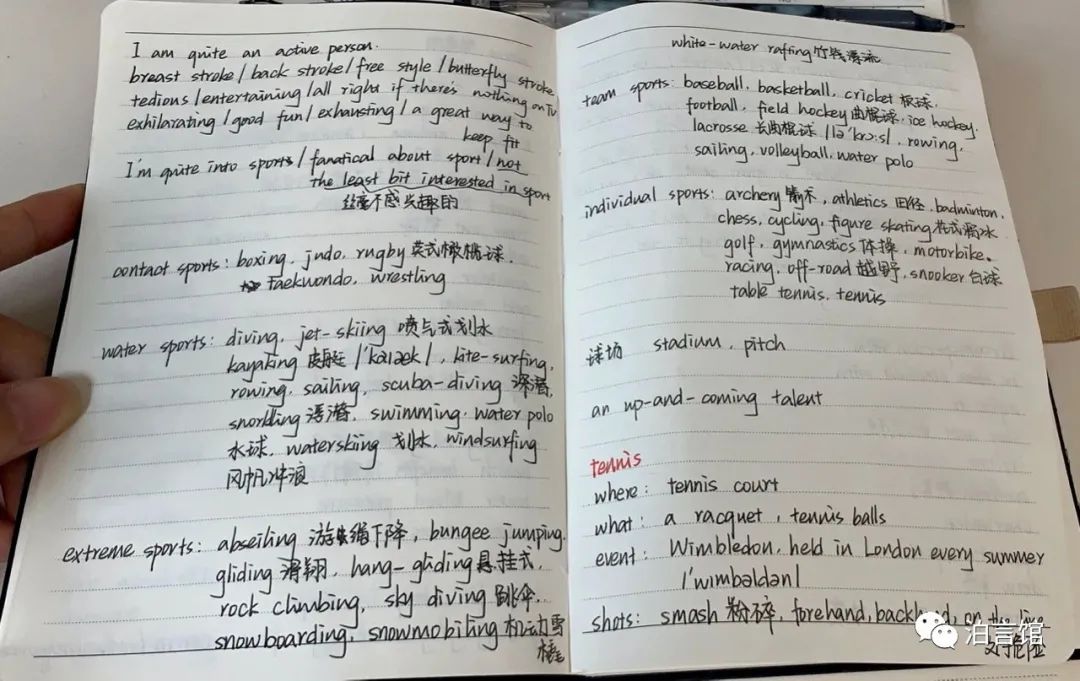 I am quite an active person.
breast stroke / back stroke / free style / butterfly stroke
tedious / entertaining / all right if there's nothing on TV
exhilarating / good fun / exhausting / a great way to
keep fit
I'm quite into sports / fanatical about sport / not
the least bit interested in sport
丝毫不感兴趣的
contact sports: boxing, judo, rugby 英式橄榄球,
taekwondo, wrestling
water sports: diving, jet-skiing 喷气式划水
kayaking 皮艇 /'kaɪæk/, kite-surfing,
rowing, sailing, scuba-diving 深潜,
snorkling 浮潜, swimming, water polo
水球, waterskiing 划水, windsurfing
风帆冲浪
extreme sports: abseiling 游绳下降, bungee jumping,
gliding 滑翔, hang-gliding 悬挂式,
rock climbing, sky diving 跳伞,
snowboarding, snowmobiling 机动雪
橇
white-water rafting 竹筏漂流
team sports: baseball, basketball, cricket 板球,
football, field hockey 曲棍球, ice hockey,
lacrosse 长曲棍球 /lə'krɔ:s/, rowing,
sailing, volleyball, water polo
individual sports: archery 射箭, athletics 田径, badminton,
chess, cycling, figure skating 花式溜冰
golf, gymnastics 体操, motorbike
racing, off-road 越野, snooker 台球
table tennis, tennis
球场 stadium, pitch
an up-and-coming talent
tennis
where: tennis court
what: a racquet, tennis balls
event: Wimbledon, held in London every summer
/'wimbəldən/
shots: smash 粉碎, forehand, backhand, on the line
泊言馆